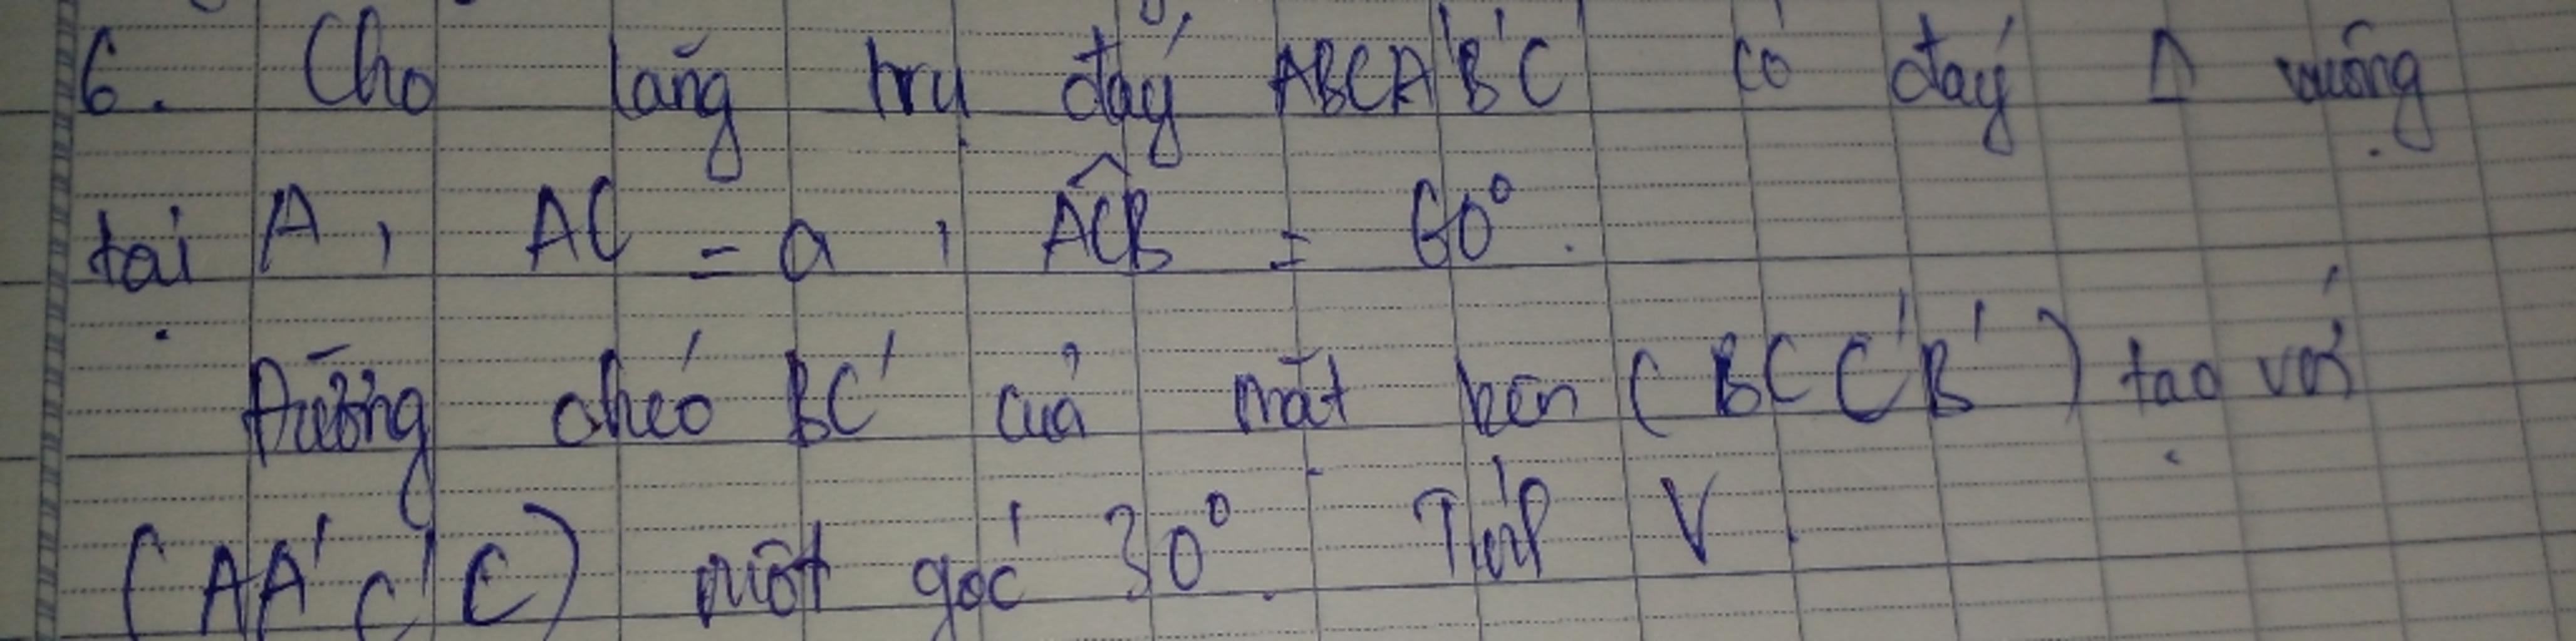 6. Cho lăng trụ đáy ABCA'B'C' có đáy Δ vuông
tại A, AC = a, \widehat{ACB} = 60°.
Đường chéo BC' của mặt bên (BCC'B') tạo với
(AA'C'C) một góc 30°. Tính V.